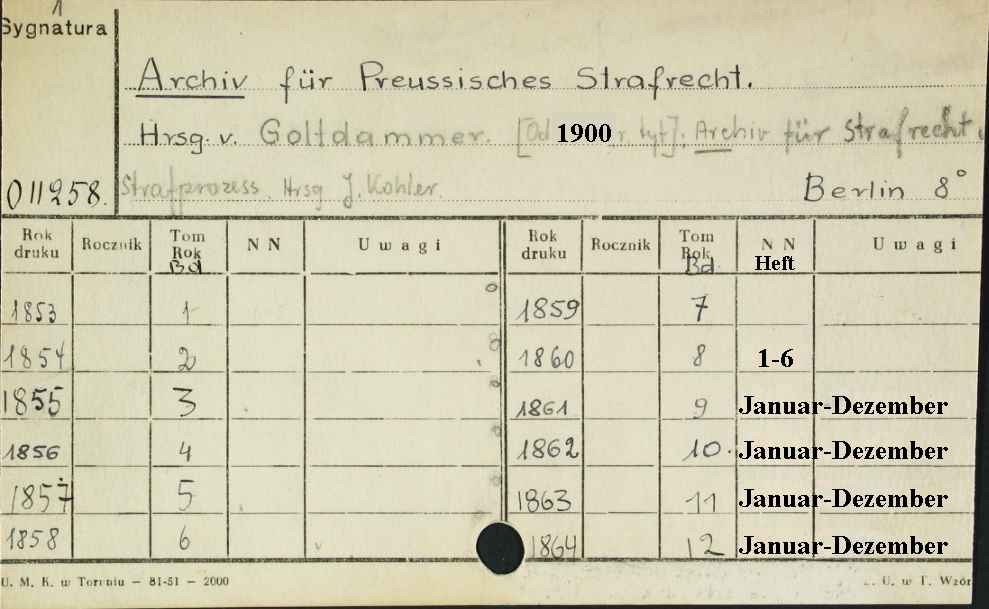 1
Sygnatura
Archiv für Preussisches Strafrecht.
Hrsg. v. Goltdammer. [Od 1900 r tyt]: Archiv für Strafrecht u.
011258. Strafprozess. Hrsg J. Kohler. Berlin 8°
Rok druku Rocznik Tom Rok Bd N N U w a g i Rok druku Rocznik Tom Rok Bd. N N Heft U w a g i
1853 1 1859 7
1854 2 1860 8 1-6
1855 3 1861 9 Januar-Dezember
1856 4 1862 10. Januar-Dezember
1857 5 1863 11 Januar-Dezember
1858 6 1864 12 Januar-Dezember
U. M. K. w Toruniu — 81-51 — 2000 U. w T. Wzór